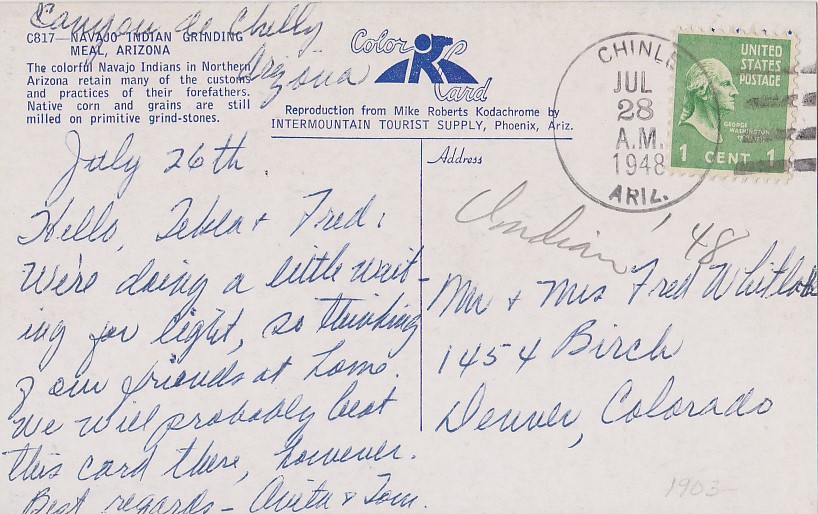 Canyon de Chelly
Arizona
C817—NAVAJO INDIAN GRINDING
MEAL, ARIZONA
The colorful Navajo Indians in Northern
Arizona retain many of the customs
and practices of their forefathers.
Native corn and grains are still
milled on primitive grind-stones.
Color
Card
Reproduction from Mike Roberts Kodachrome by
INTERMOUNTAIN TOURIST SUPPLY, Phoenix, Ariz.
CHINLE
JUL
28
A.M.
1948
ARIZ.
UNITED
STATES
POSTAGE
GEORGE
WASHINGTON
1 CENT 1
July 26th
Hello, Tekla & Fred:
We're doing a little wait-
ing for light, so thinking
of our friends at home.
We will probably beat
this card there, however.
Best regards - Anita & Tom.
Address
Indian, '48
Mr & Mrs Fred Whitlock
1454 Birch
Denver, Colorado
1903-